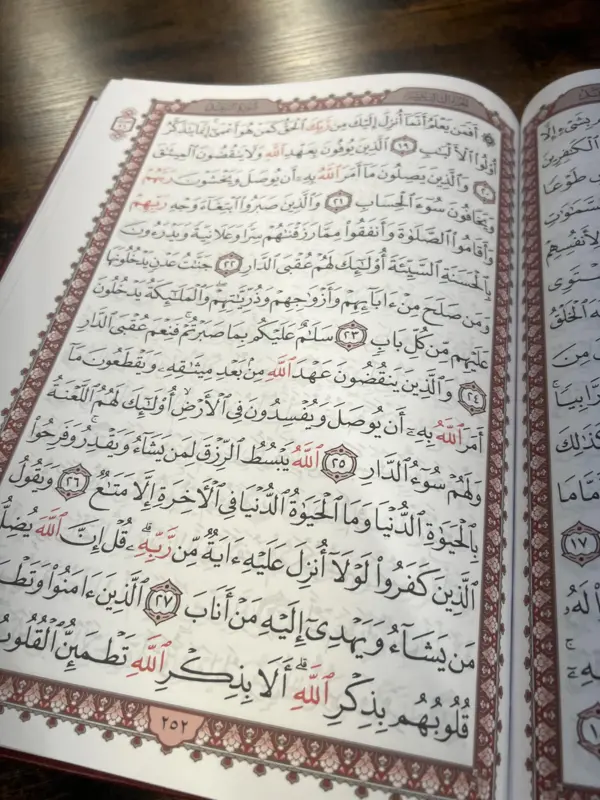 وإلا
الكفرين
طوعا
لأنفسهم
الخلق
كذلك
١٧
۞ أَفَمَن يَعْلَمُ أَنَّمَا أُنزِلَ إِلَيْكَ مِن رَّبِّكَ ٱلْحَقُّ كَمَنْ هُوَ أَعْمَىٰٓ إِنَّمَا يَتَذَكَّرُ
أُو۟لُوا۟ ٱلْأَلْبَٰبِ ١٩ ٱلَّذِينَ يُوفُونَ بِعَهْدِ ٱللَّهِ وَلَا يَنقُضُونَ ٱلْمِيثَٰقَ
٢٠ وَٱلَّذِينَ يَصِلُونَ مَآ أَمَرَ ٱللَّهُ بِهِۦٓ أَن يُوصَلَ وَيَخْشَوْنَ رَبَّهُمْ
وَيَخَافُونَ سُوٓءَ ٱلْحِسَابِ ٢١ وَٱلَّذِينَ صَبَرُوا۟ ٱبْتِغَآءَ وَجْهِ رَبِّهِمْ
وَأَقَامُوا۟ ٱلصَّلَوٰةَ وَأَنفَقُوا۟ مِمَّا رَزَقْنَٰهُمْ سِرًّا وَعَلَانِيَةً وَيَدْرَءُونَ
بِٱلْحَسَنَةِ ٱلسَّيِّئَةَ أُو۟لَٰٓئِكَ لَهُمْ عُقْبَى ٱلدَّارِ ٢٢ جَنَّٰتُ عَدْنٍ يَدْخُلُونَهَا
وَمَن صَلَحَ مِنْ ءَابَآئِهِمْ وَأَزْوَٰجِهِمْ وَذُرِّيَّٰتِهِمْ ۖ وَٱلْمَلَٰٓئِكَةُ يَدْخُلُونَ
عَلَيْهِم مِّن كُلِّ بَابٍ ٢٣ سَلَٰمٌ عَلَيْكُم بِمَا صَبَرْتُمْ ۚ فَنِعْمَ عُقْبَى ٱلدَّارِ
٢٤ وَٱلَّذِينَ يَنقُضُونَ عَهْدَ ٱللَّهِ مِنۢ بَعْدِ مِيثَٰقِهِۦ وَيَقْطَعُونَ مَآ
أَمَرَ ٱللَّهُ بِهِۦٓ أَن يُوصَلَ وَيُفْسِدُونَ فِى ٱلْأَرْضِ ۙ أُو۟لَٰٓئِكَ لَهُمُ ٱللَّعْنَةُ
وَلَهُمْ سُوٓءُ ٱلدَّارِ ٢٥ ٱللَّهُ يَبْسُطُ ٱلرِّزْقَ لِمَن يَشَآءُ وَيَقْدِرُ ۚ وَفَرِحُوا۟
بِٱلْحَيَوٰةِ ٱلدُّنْيَا وَمَا ٱلْحَيَوٰةُ ٱلدُّنْيَا فِى ٱلْءَاخِرَةِ إِلَّا مَتَٰعٌ ٢٦ وَيَقُولُ
ٱلَّذِينَ كَفَرُوا۟ لَوْلَآ أُنزِلَ عَلَيْهِ ءَايَةٌ مِّن رَّبِّهِۦ ۗ قُلْ إِنَّ ٱللَّهَ يُضِلُّ
مَن يَشَآءُ وَيَهْدِىٓ إِلَيْهِ مَنْ أَنَابَ ٢٧ ٱلَّذِينَ ءَامَنُوا۟ وَتَطْ
قُلُوبُهُم بِذِكْرِ ٱللَّهِ ۗ أَلَا بِذِكْرِ ٱللَّهِ تَطْمَئِنُّ ٱلْقُلُوبُ
٢٥٢